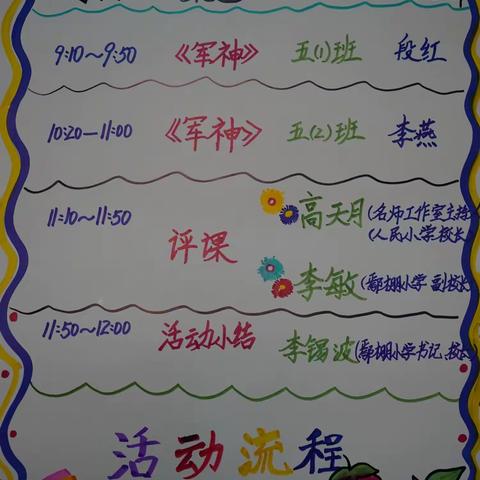 9:10~9:50 《军神》 五(1)班 段红
10:20—11:00 《军神》 五(2)班 李燕
11:10~11:50 评课 高天月(名师工作室主持
(人民小学校长
李敏(鄢棚小学 副校长
11:50~12:00 活动小结 李锡波(鄢棚小学书记、校长
活动流程